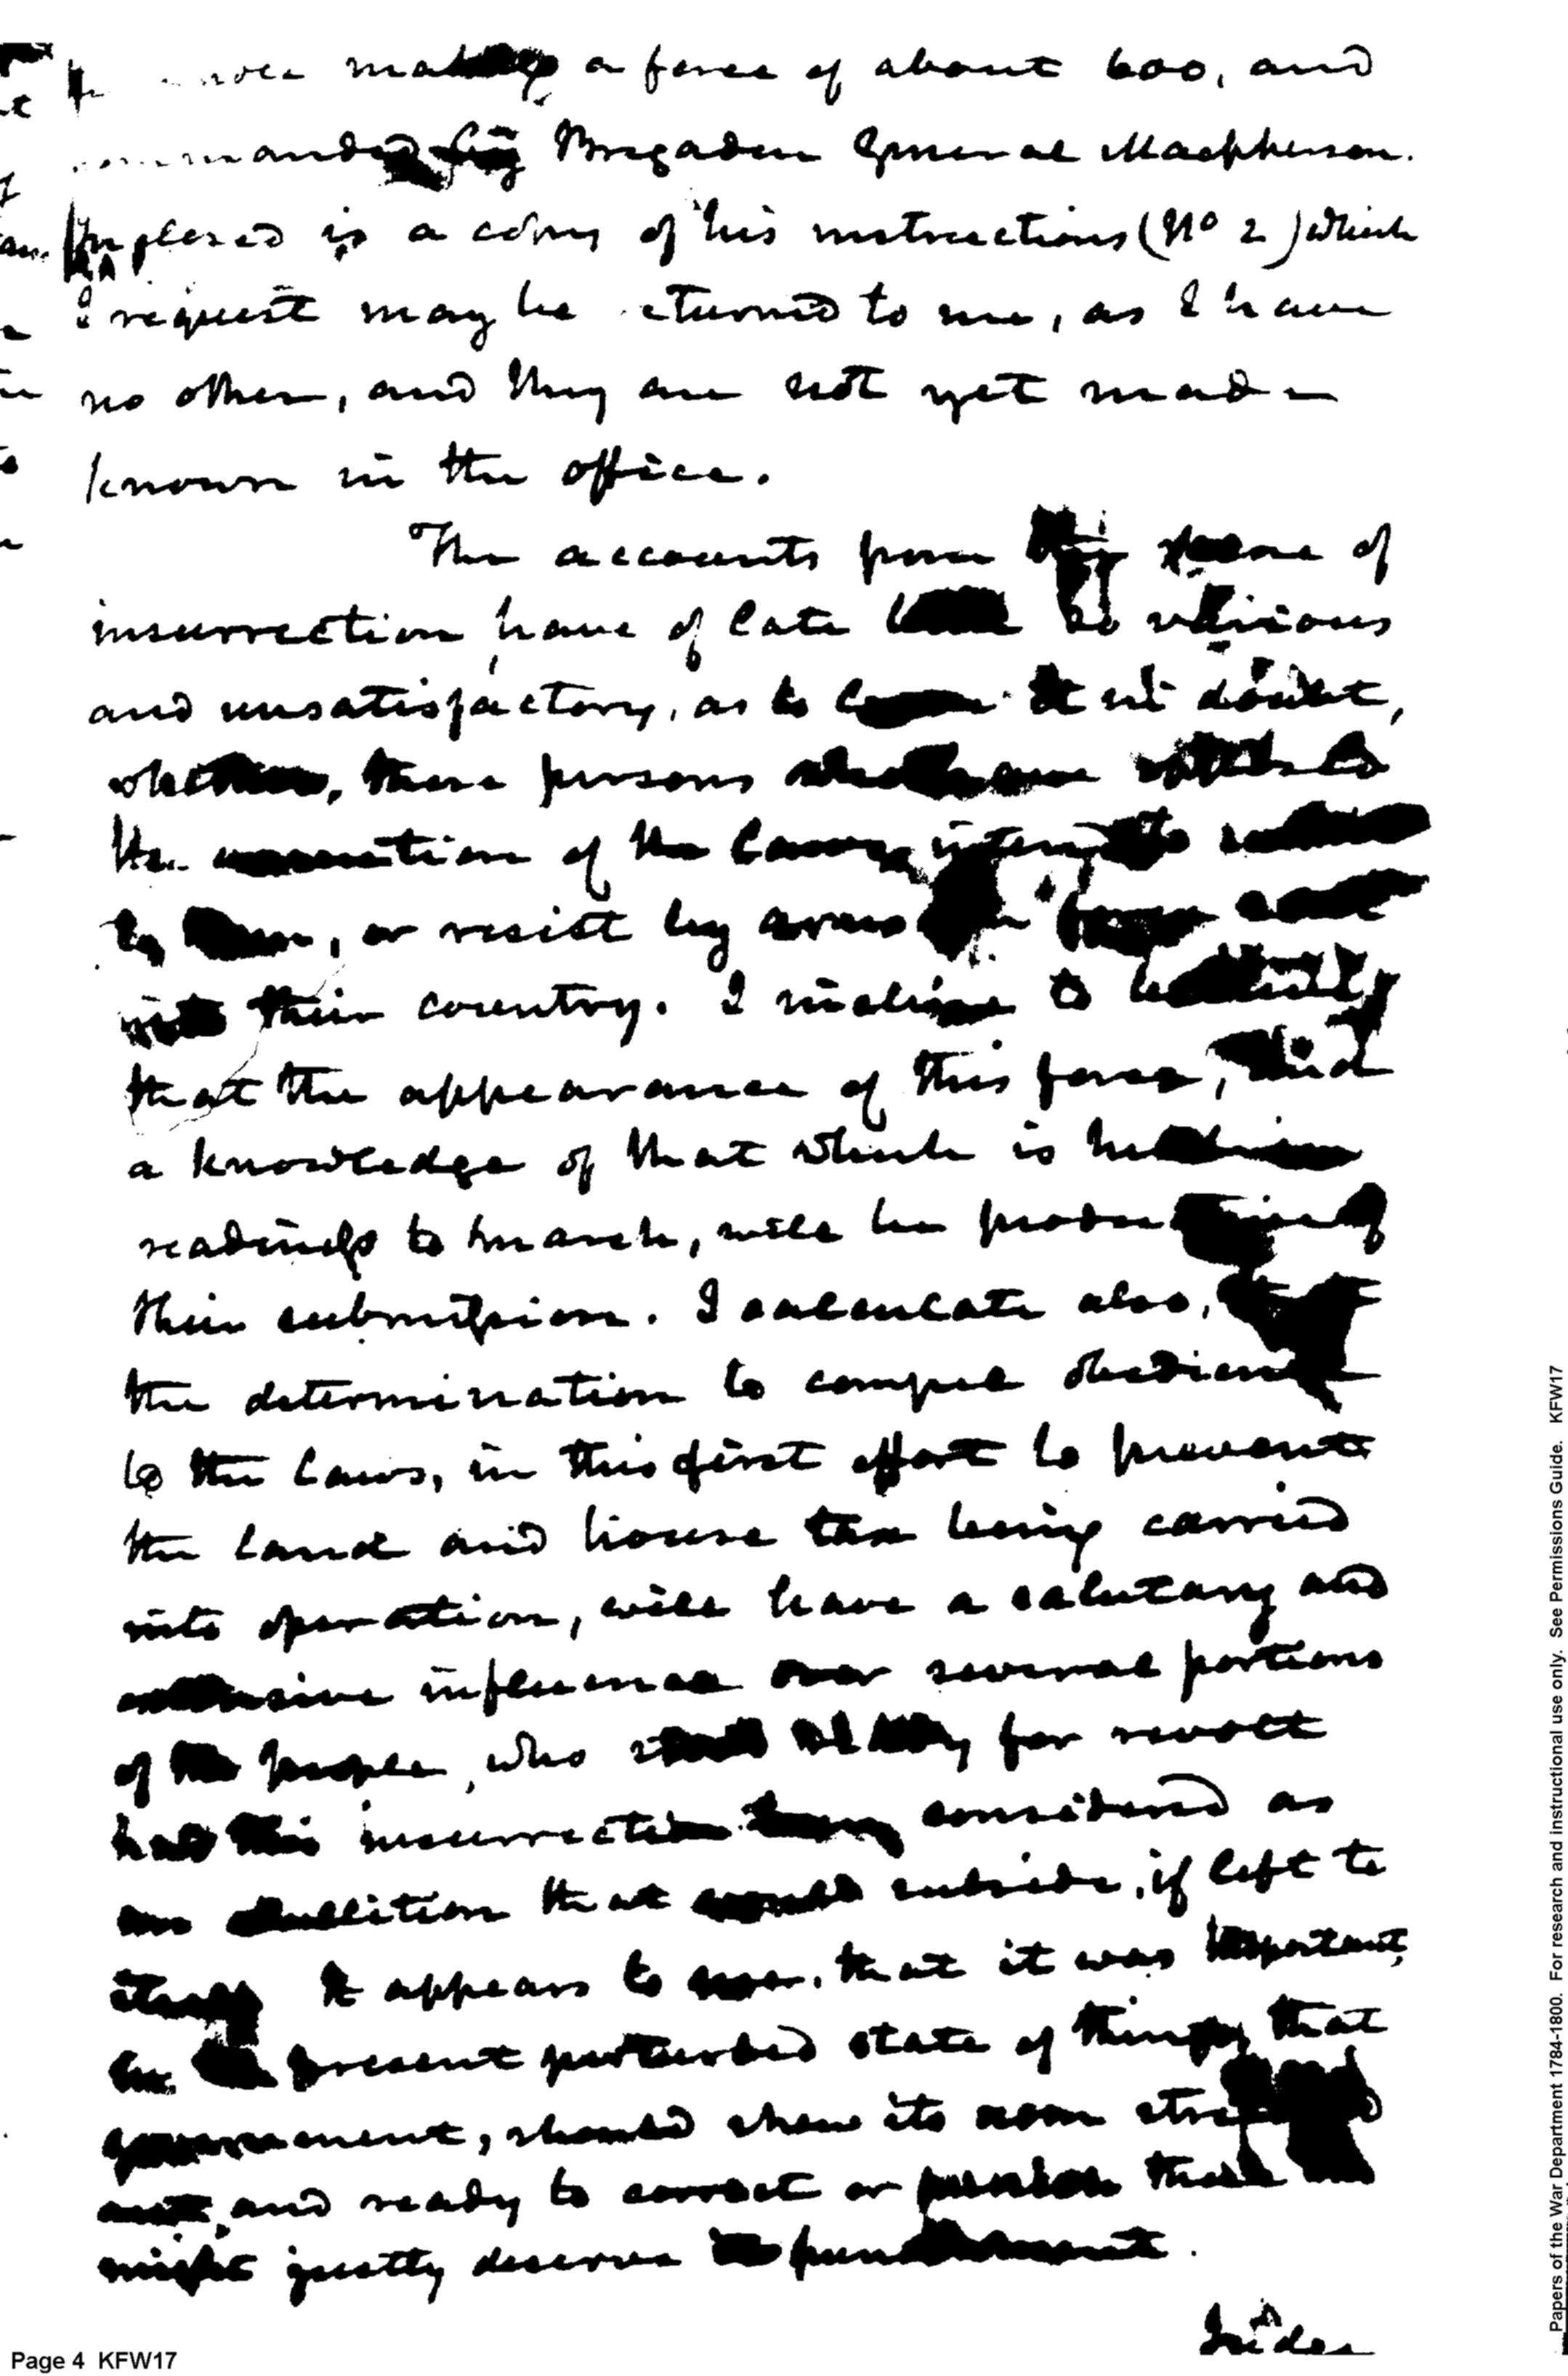 a force of about 600, and
Brigadier General Macpherson.
Inclosed is a copy of his instructions (No 2) which
I request may be returned to me, as I have
no other, and they are not yet made
known in the office.
The accounts from scene of
insurrection, have of late so various
and unsatisfactory, as to it in doubt,
whether, these persons
the execution of the laws, intend to
or resist by arms
into their country. I incline to
that the appearance of this force, and
a knowledge of that which is held in
readiness to march, will be productive of
their submission. I calculate also, that
the determination to compel obedience
to the laws, in this first effort to prevent
the land and house tax being carried
into operation, will have a salutary and
extensive influence over several portions
of the people, who stood ready for revolt
had this insurrection been considered as
an ebullition that would subside, if left to
itself. It appears to me, that it was important,
in the present perturbed state of things, that
government, should shew its arm
and ready to correct or punish
might justly deserve punishment.
Papers of the War Department 1784-1800. For research and instructional use only. See Permissions Guide. KFW17
Page 4 KFW17